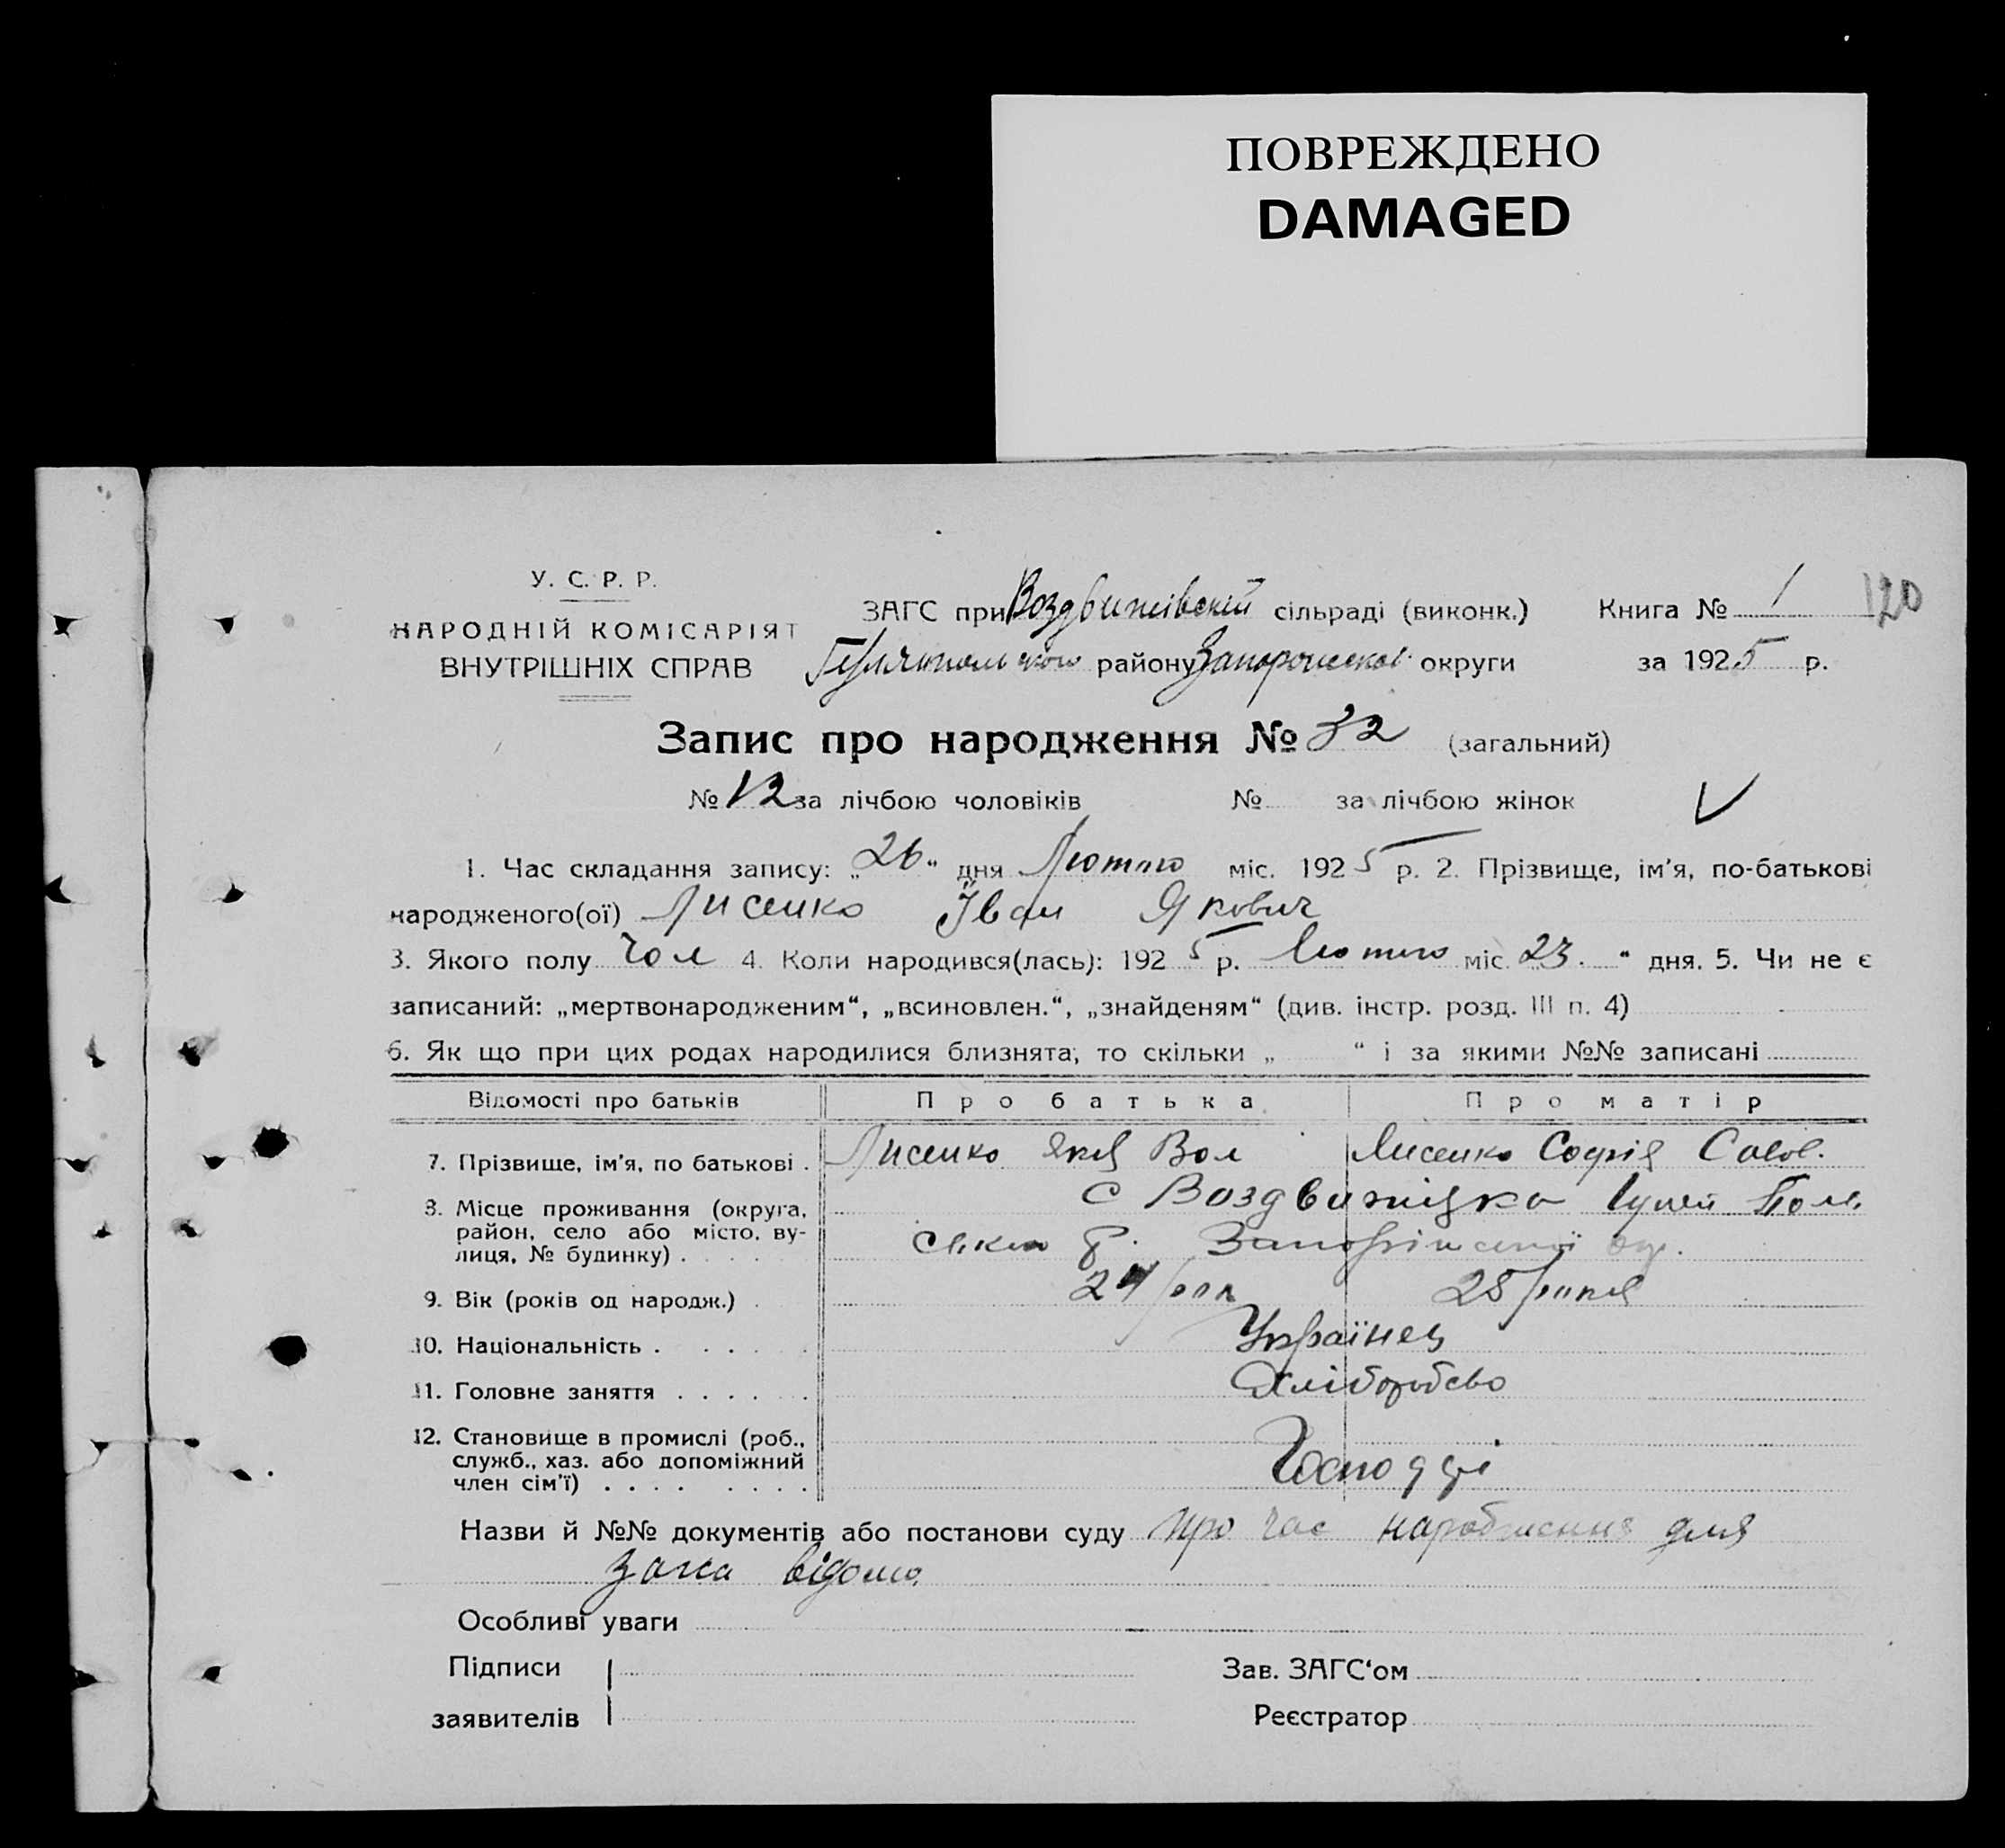 ПОВРЕЖДЕНО
DAMAGED
У. С. Р. Р.
НАРОДНІЙ КОМІСАРІЯТ
ВНУТРІШНІХ СПРАВ
ЗАГС при Воздвижівскій сільраді (виконк.) Книга № 1 120
району округи за 1925 р.
Запис про народження № 32 (загальний)
№ 12 за лічбою чоловіків № за лічбою жінок
1. Час складання запису: „26“ дня Лютого міс. 1925 р. 2. Прізвище, ім'я, по-батькові
народженого(ої) Лисенко Іван Якович
3. Якого полу чол 4. Коли народився(лась): 1925 р. Лютого міс. 23. “ дня. 5. Чи не є
записаний: „мертвонародженим“, „всиновлен.“, „знайденям“ (див. інстр. розд. III п. 4)
6. Як що при цих родах народилися близнята, то скільки „ “ і за якими №№ записані
Відомості про батьків Про батька Про матір
7. Прізвище, ім'я, по батькові . Лисенко Яків Вол Лисенко Софія Савов.
8. Місце проживання (округа, район, село або місто, вулиця, № будинку) . с Воздвижівка Гуляй Поль
ського р. Запоріжської окр.
9. Вік (років од народж.) . 24 рок 25 років
10. Національність . Українец
11. Головне заняття . Хліборобсво
12. Становище в промислі (роб.,
служб., хаз. або допоміжний
член сім'ї) .
Назви й №№ документів або постанови суду про час народження для
загса відомо.
Особливі уваги
Підписи Зав. ЗАГС‘ом
заявителів Реєстратор